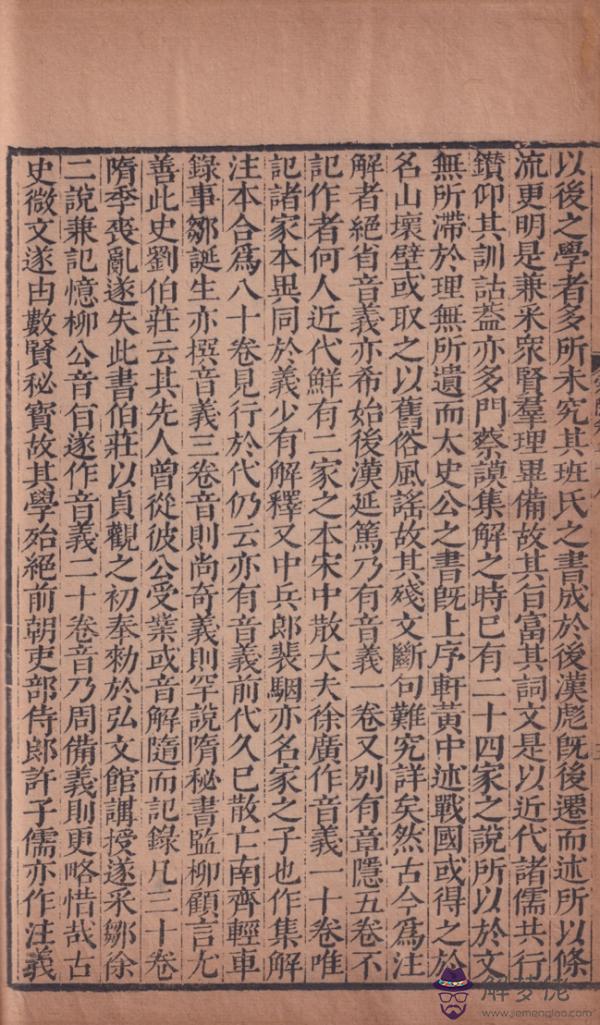 以後之學者多所未究其班氏之書成於後漢彪旣後遷而述所以條
流更明是兼采衆賢羣理畢備故其旨富其詞文是以近代諸儒共行
鑽仰其訓詁葢亦多門蔡謨集解之時已有二十四家之說所以於文
無所滯於理無所遺而太史公之書旣上序軒黃中述戰國或得之於
名山壞壁或取之以舊俗風謠故其殘文斷句難究詳矣然古今爲注
解者絕省音義亦希始後漢延篤乃有音義一卷又別有章隱五卷不
記作者何人近代鮮有二家之本宋中散大夫徐廣作音義一十卷唯
記諸家本異同於義少有解釋又中兵郎裴駰亦名家之子也作集解
注本合爲八十卷見行於代仍云亦有音義前代久已散亡南齊輕車
錄事鄒誕生亦撰音義三卷音則尚奇義則罕說隋秘書監柳顧言尤
善此史劉伯莊云其先人曾從彼公受業或音解隨而記錄凡三十卷
隋季喪亂遂失此書伯莊以貞觀之初奉勑於弘文館講授遂采鄒徐
二說兼記憶柳公音旨遂作音義二十卷音乃周備義則更略惜哉古
史微文遂由數賢秘寳故其學殆絕前朝吏部侍郎許子儒亦作注義
解夢佬
www.jiemenglao.com